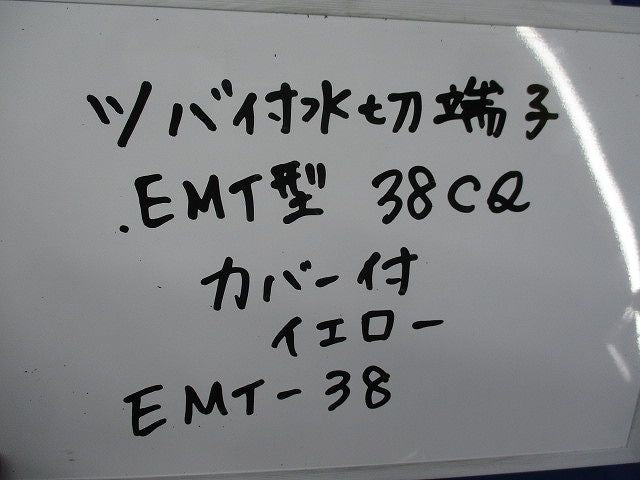 ツバ付水切端子
.EMT型 38CQ
カバー付
イエロー
EMT-38